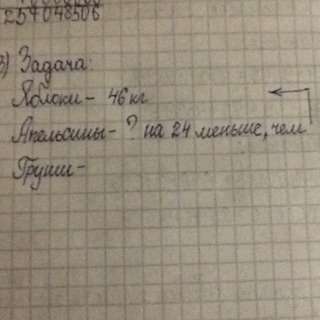 257048506
3) Задача:
Яблоки - 46 кг
Апельсины - ? на 24 меньше, чем
Груши -